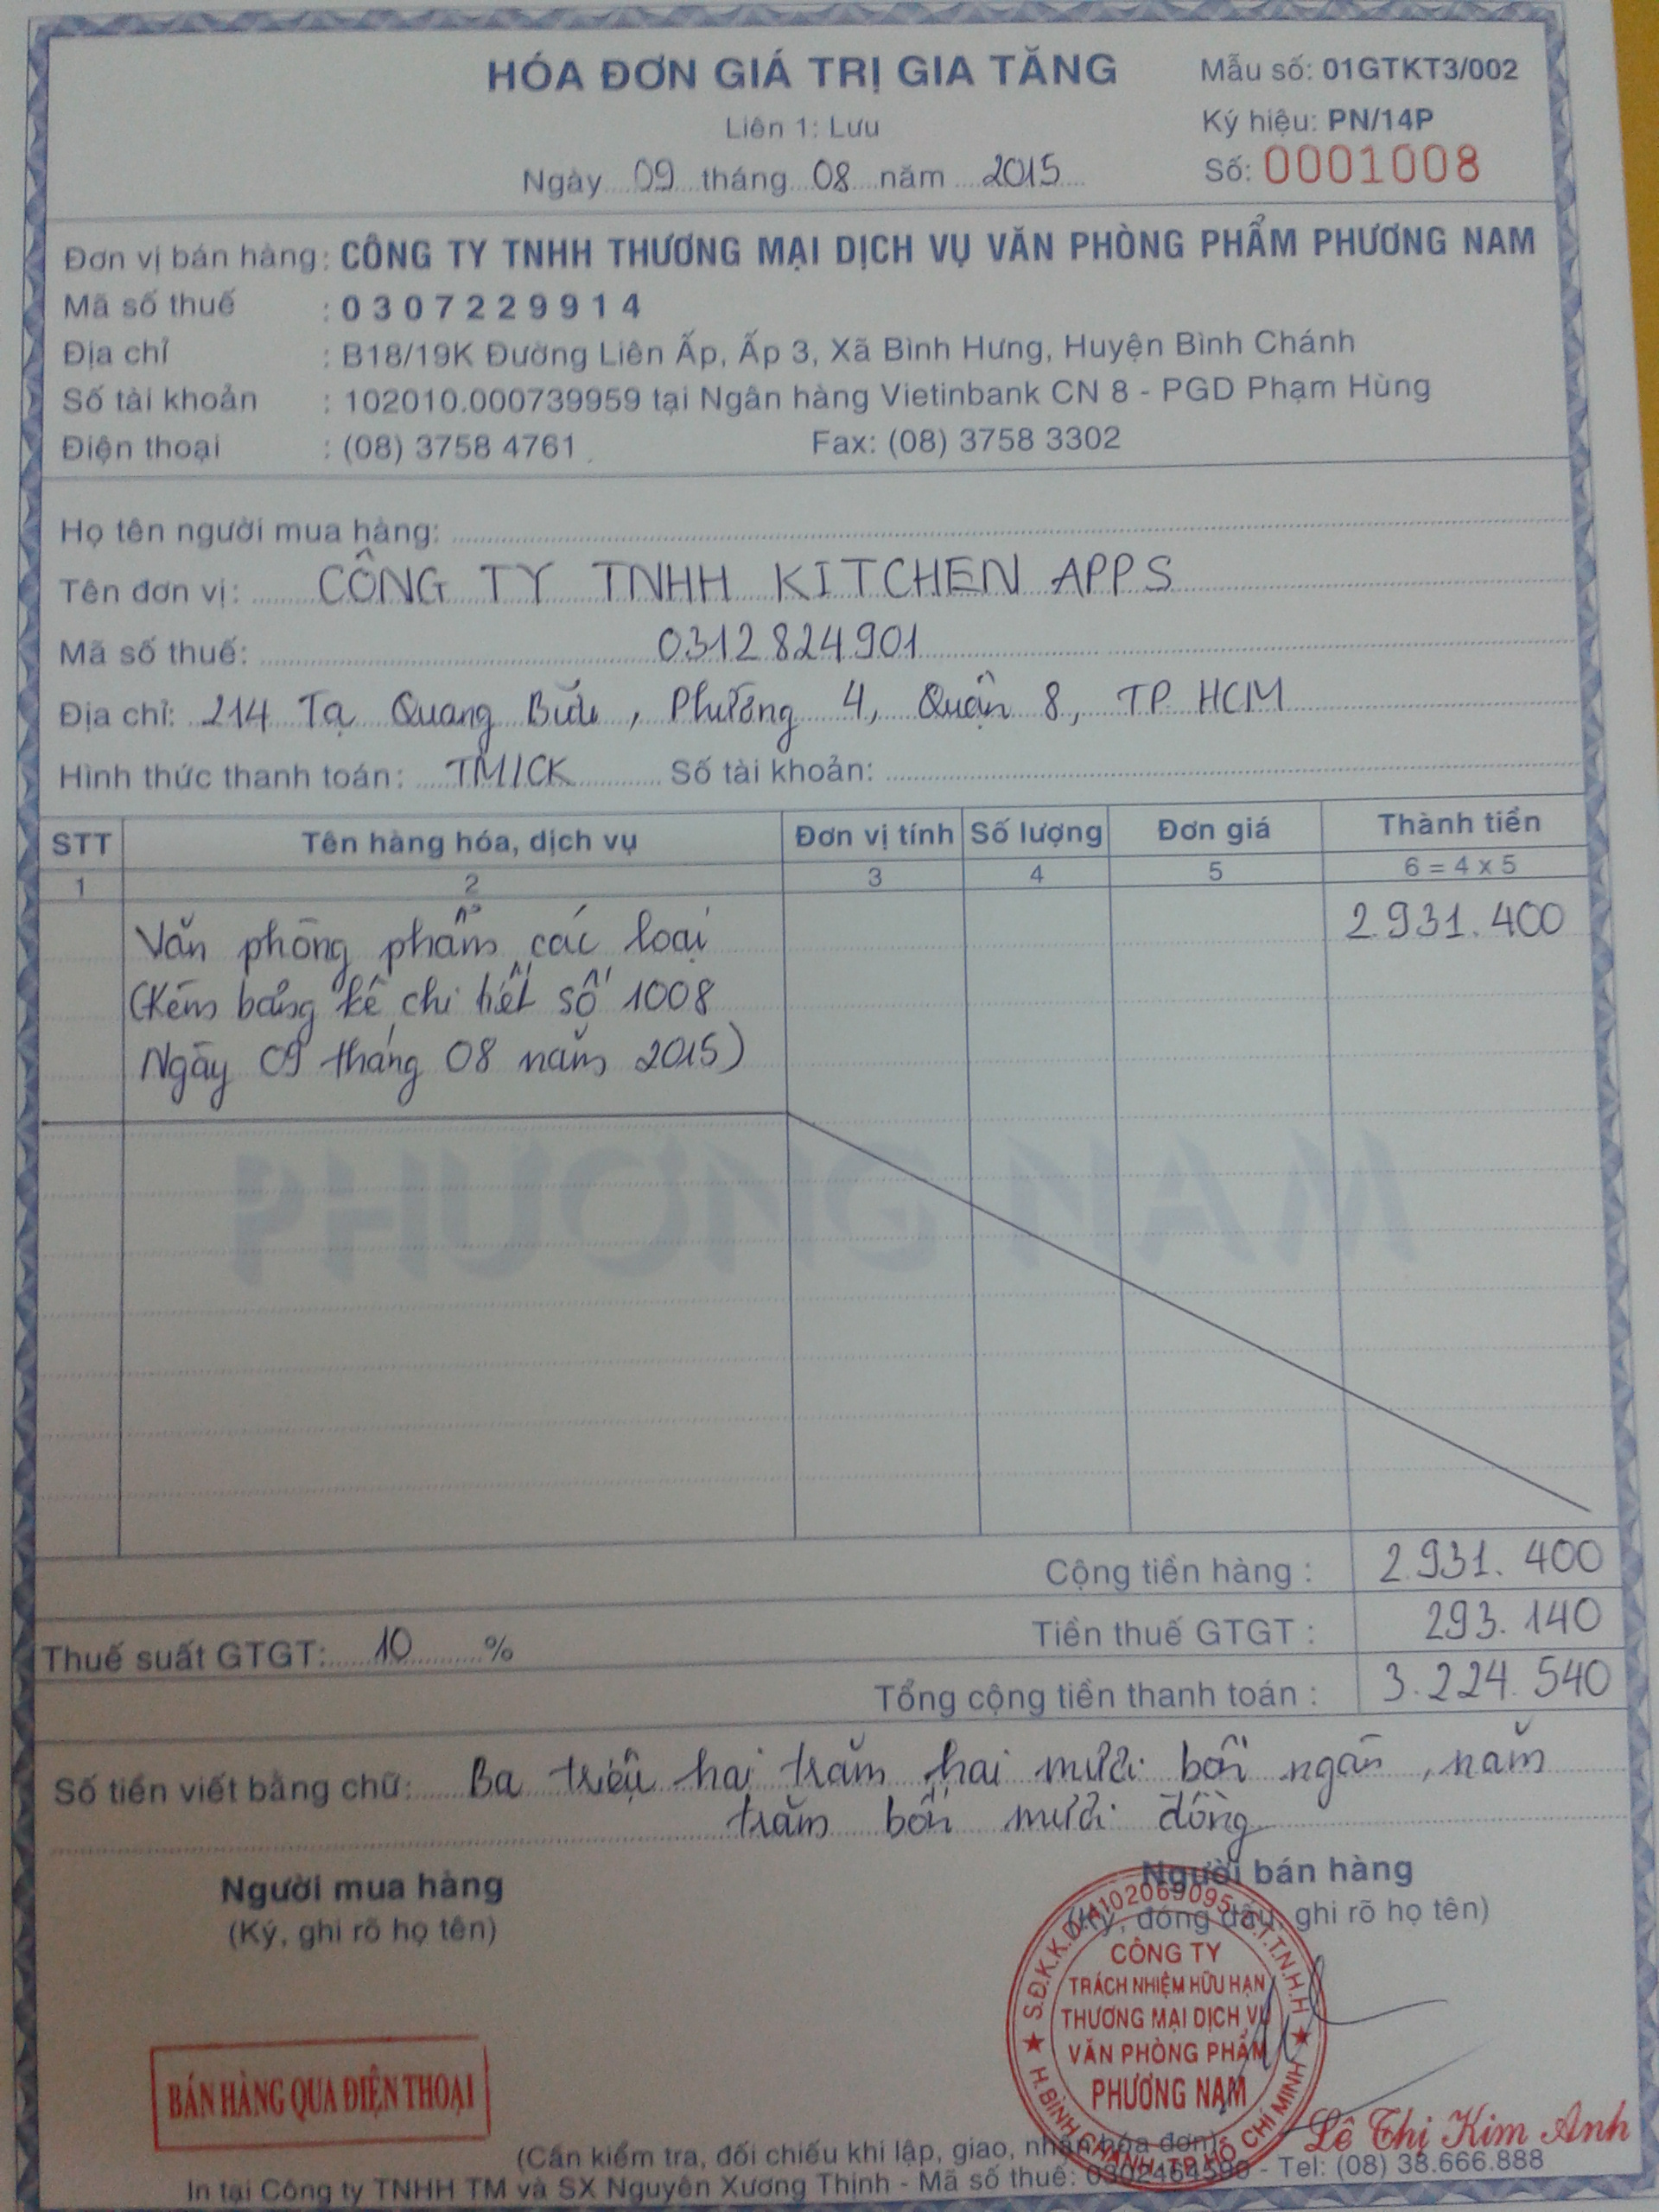 HÓA ĐƠN GIÁ TRỊ GIA TĂNG
Mẫu số: 01GTKT3/002
Liên 1: Lưu
Ký hiệu: PN/14P
Ngày 09 tháng 08 năm 2015
Số: 0001008
Đơn vị bán hàng: CÔNG TY TNHH THƯƠNG MẠI DỊCH VỤ VĂN PHÒNG PHẨM PHƯƠNG NAM
Mã số thuế : 0307229914
Địa chỉ : B18/19K Đường Liên Ấp, Ấp 3, Xã Bình Hưng, Huyện Bình Chánh
Số tài khoản : 102010.000739959 tại Ngân hàng Vietinbank CN 8 - PGD Phạm Hùng
Điện thoại : (08) 3758 4761 Fax: (08) 3758 3302
Họ tên người mua hàng:
Tên đơn vị: CÔNG TY TNHH KITCHEN APPS
Mã số thuế: 0312824901
Địa chỉ: 214 Tạ Quang Bửu, Phường 4, Quận 8, TP HCM
Hình thức thanh toán: TM/CK Số tài khoản:
STT Tên hàng hóa, dịch vụ Đơn vị tính Số lượng Đơn giá Thành tiền
1 2 3 4 5 6 = 4 x 5
Văn phòng phẩm các loại 2.931.400
(Kèm bảng kê chi tiết số 1008
Ngày 09 tháng 08 năm 2015)
PHƯƠNG NAM
Cộng tiền hàng : 2.931.400
Thuế suất GTGT: 10 % Tiền thuế GTGT : 293.140
Tổng cộng tiền thanh toán : 3.224.540
Số tiền viết bằng chữ: Ba triệu hai trăm hai mươi bốn ngàn, năm
trăm bốn mươi đồng
Người mua hàng
(Ký, ghi rõ họ tên)
Người bán hàng
(Ký, đóng dấu, ghi rõ họ tên)
CÔNG TY
TRÁCH NHIỆM HỮU HẠN
THƯƠNG MẠI DỊCH VỤ
VĂN PHÒNG PHẨM
PHƯƠNG NAM
H.BÌNH CHÁNH-TP.HỒ CHÍ MINH
BÁN HÀNG QUA ĐIỆN THOẠI
Lê Thị Kim Anh
(Cần kiểm tra, đối chiếu khi lập, giao, nhận hóa đơn)
In tại Công ty TNHH TM và SX Nguyên Xương Thịnh - Mã số thuế: 0302464590 - Tel: (08) 38.666.888